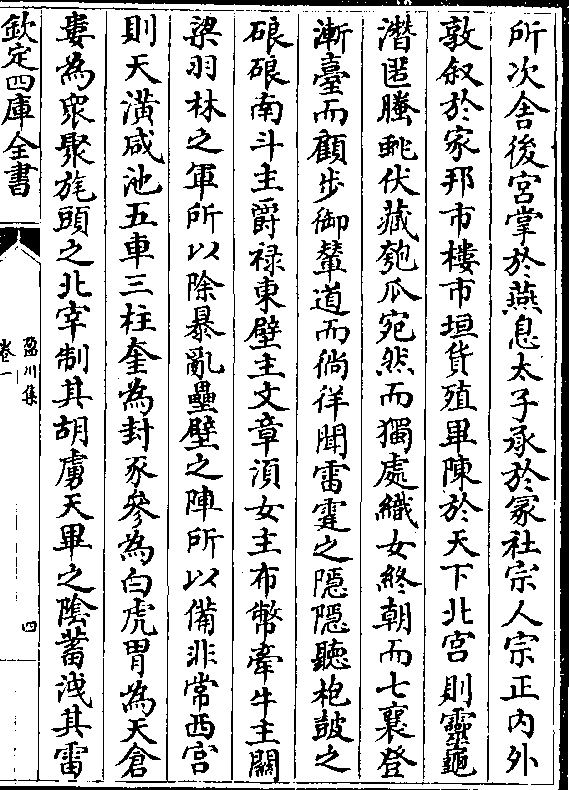 所次舍後宮掌於燕息太子承於冢社宗人宗正内外
敦叙於家邦市樓市垣貨殖畢陳於天下北宫則靈龜
潛匿螣蛇伏藏瓠瓜宛然而獨處織女終朝而七襄登
漸臺而顧步御輦道而徜徉聞雷霆之隠隠聽枹鼓之
硠硠南斗主爵禄東壁主文章湏女主布幣牽牛主關
梁羽林之軍所以除暴亂壘壁之陣所以備非常西宫
則天潢咸池五車三柱奎為封豕參為白虎胃為天倉
婁為衆聚旄頭之北宰制其胡虜天畢之隂蓄洩其雷
欽定四庫全書
盈川集
卷一
四